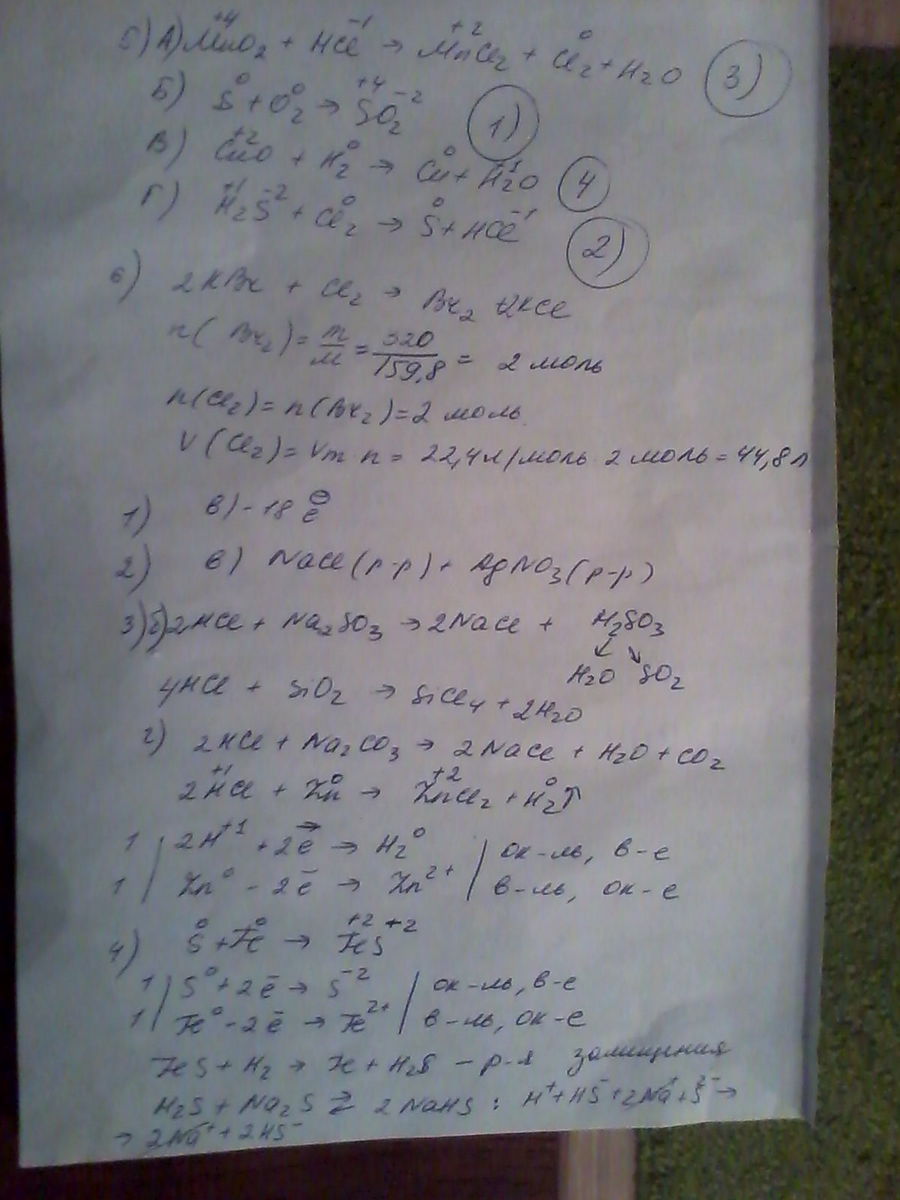 5) А) Mn⁺⁴O₂ + HCl⁻¹ → Mn⁺²Cl₂ + Cl₂⁰ + H₂O 3)
Б) S⁰ + O₂⁰ → S⁺⁴O₂⁻² 1)
В) Cu⁺²O + H₂⁰ → Cu⁰ + H₂⁺¹O 4
Г) H₂⁺¹S⁻² + Cl₂⁰ → S⁰ + HCl⁻¹ 2)
6) 2KBr + Cl₂ → Br₂ + 2KCl
n(Br₂) = m/M = 320/159,8 = 2 моль
n(Cl₂) = n(Br₂) = 2 моль
V(Cl₂) = Vm · n = 22,4 л/моль · 2 моль = 44,8 л
1) в) - 18 ē
2) в) NaCl(р-р) + AgNO₃(р-р)
3) б) 2HCl + Na₂SO₃ → 2NaCl + H₂SO₃
↙ ↘
H₂O SO₂
4HCl + SiO₂ → SiCl₄ + 2H₂O
г) 2HCl + Na₂CO₃ → 2NaCl + H₂O + CO₂
2H⁺¹Cl + Zn⁰ → Zn⁺²Cl₂ + H₂⁰↑
1 | 2H⁺¹ + 2ē → H₂⁰ | ок-ль, в-е
1 | Zn⁰ - 2ē → Zn²⁺ | в-ль, ок-е
4) S⁰ + Fe⁰ → Fe⁺²S⁺²
1 | S⁰ + 2ē → S⁻² | ок-ль, в-е
1 | Fe⁰ - 2ē → Fe²⁺ | в-ль, ок-е
FeS + H₂ → Fe + H₂S - р-я замищения
H₂S + Na₂S ⇄ 2NaHS : H⁺ + HS⁻ + 2Na⁺ + S²⁻ →
→ 2Na⁺ + 2HS⁻